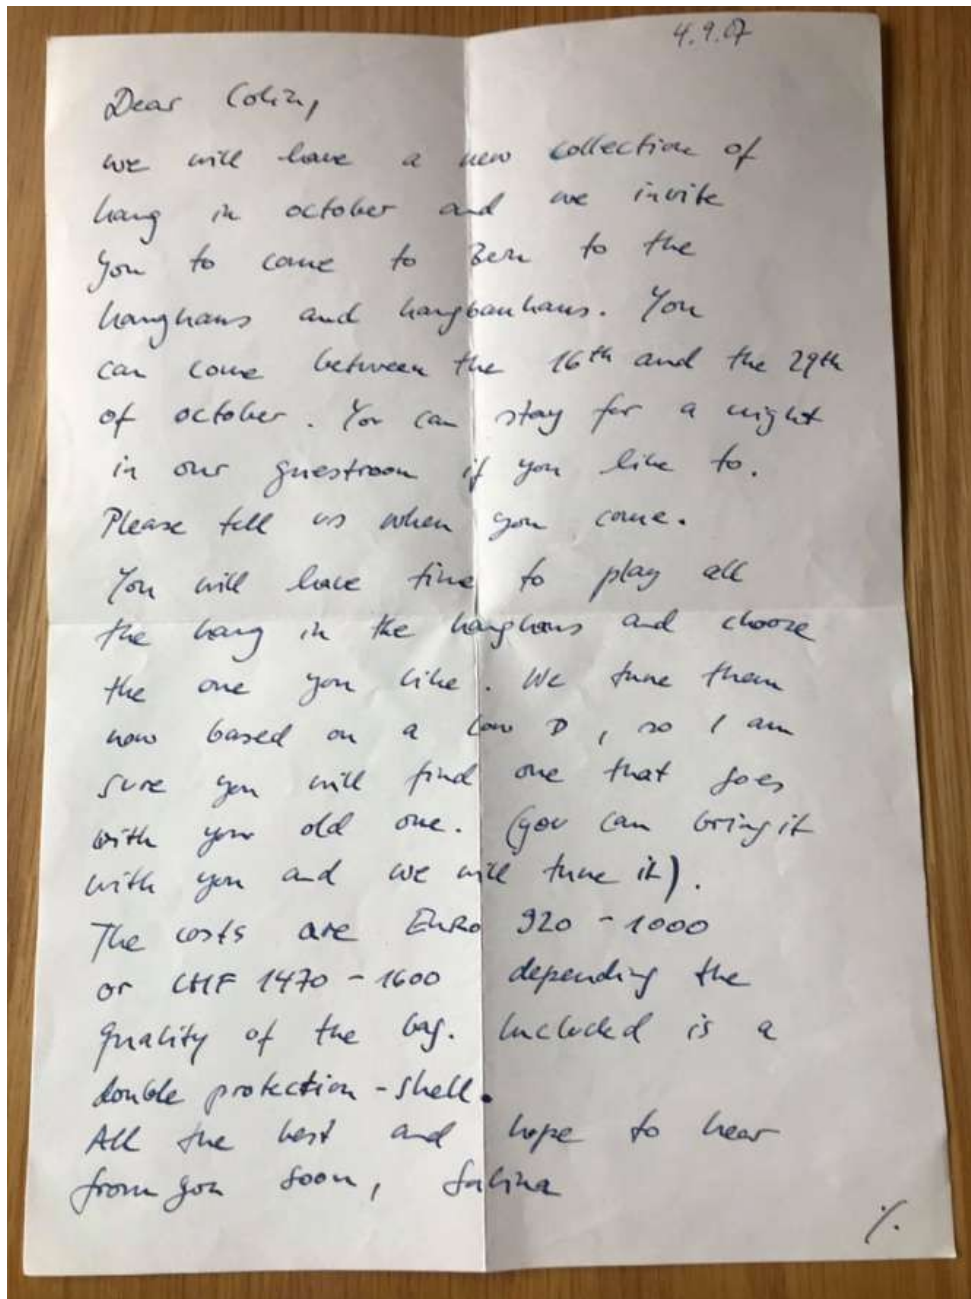 4.9.07
Dear Colin,
we will have a new collection of
hang in october and we invite
You to come to Bern to the
hanghaus and hangbauhaus. You
can come between the 16th and the 29th
of october. You can stay for a night
in our guestroom if you like to.
Please tell us when you come.
You will have time to play all
the hang in the hanghaus and choose
the one you like. We tune them
now based on a low D, so I am
sure you will find one that goes
with your old one. (you can bring it
with you and we will tune it).
The costs are EURO 920 - 1000
or CHF 1470 - 1600 depending the
quality of the bag. Included is a
double protection-shell.
All the best and hope to hear
from you soon, Sabina
./.